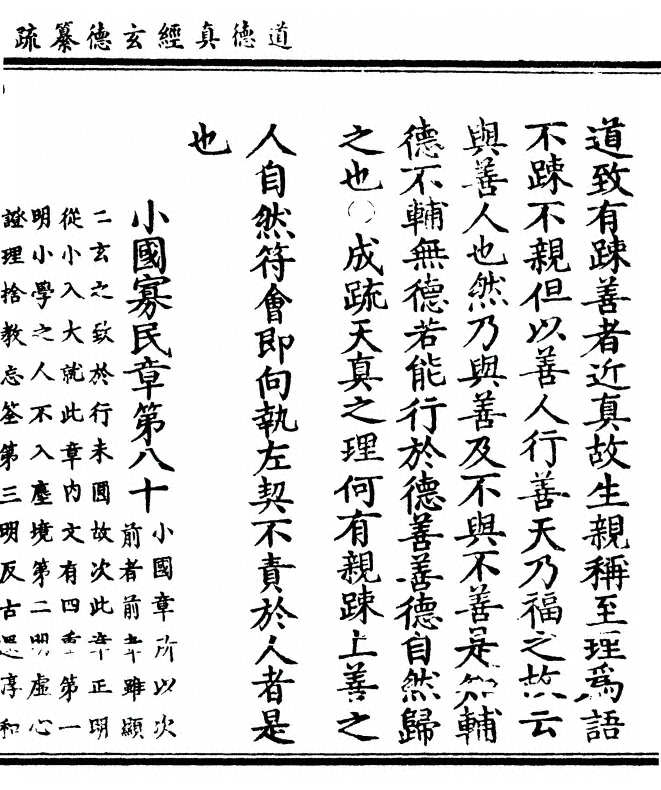 道德真經玄德纂疏
道致有踈善者近真故生親稱至理為語
不踈不親但以善人行善天乃福之故云
與善人也然乃與善及不與不善是知輔
德不輔無德若能行於德善善德自然歸
之也〇成疏天真之理何有親踈上善之
人自然符會即向執左契不責於人者是
也
小國寡民章第八十
小國章所以次
前者前章雖顯
二玄之致於行未圓故次此章正明
從小入大就此章內文有四重第一
明小學之人不入塵境第二明虛心
證理捨教忘筌第三明反古還淳和